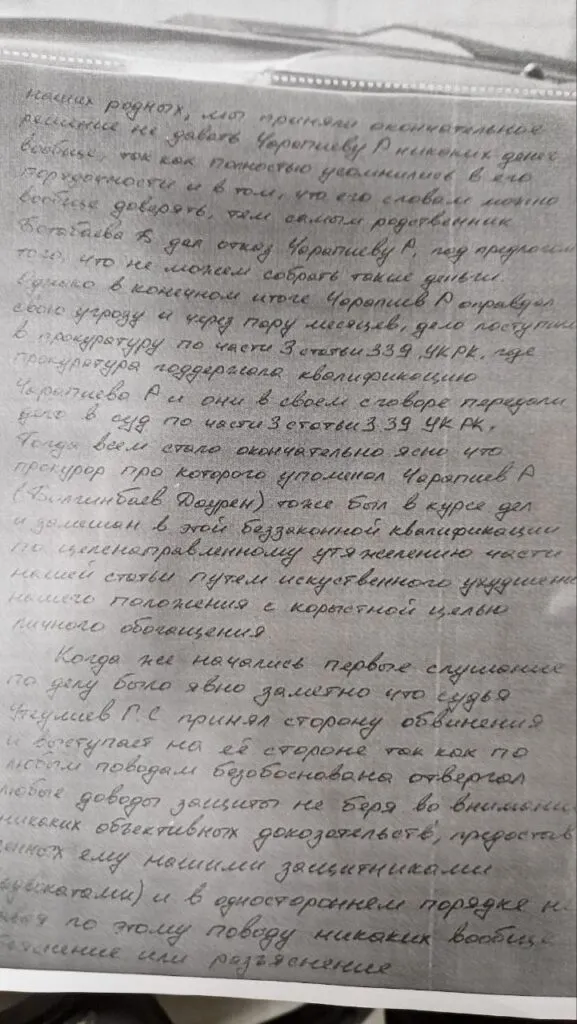 наших родных, мы приняли окончательное
решение не давать Чарапиеву А никаких денег
вообще, так как полностью усомнились в его
порядочности и в том, что его словам можно
вообще доверять, тем самым родственник
Ботабаева Б дал отказ Чарапиеву А, под предлогом
того, что не можем собрать такие деньги.
Однако в конечном итоге Чарапиев А оправдал
свою угрозу и через пару месяцев, дело поступи
в прокуратуру по части 3 статьи 339 УКРК, где
прокуратура поддержала квалификацию
Чарапиева А и они в своем сговоре передали
дело в суд по части 3 статьи 3.39 УК РК.
Тогда всем стало окончательно ясно что
прокурор про которого упоменал Чарапиев А
(Билгинбаев Даурен) тоже был в курсе дел
и замешан в этой беззаконной квалификации
по целенаправленному утяжелению части
нашей статьи путем искуственного ухудшени
нашего положения с корыстной целью
личного обогащения
Когда же начались первые слушание
по делу было явно заметно что судья
Г.С принял сторону обвинения
и выступает на её стороне так как по
любым поводам безобоснована отвергал
любые доводы защиты не беря во внимани
никаких объективных докозательств, предостав
енных ему нашими защитниками
адвокатами) и в одностороннем порядке н
авая по этому поводу никаких вообще
или разъяснение